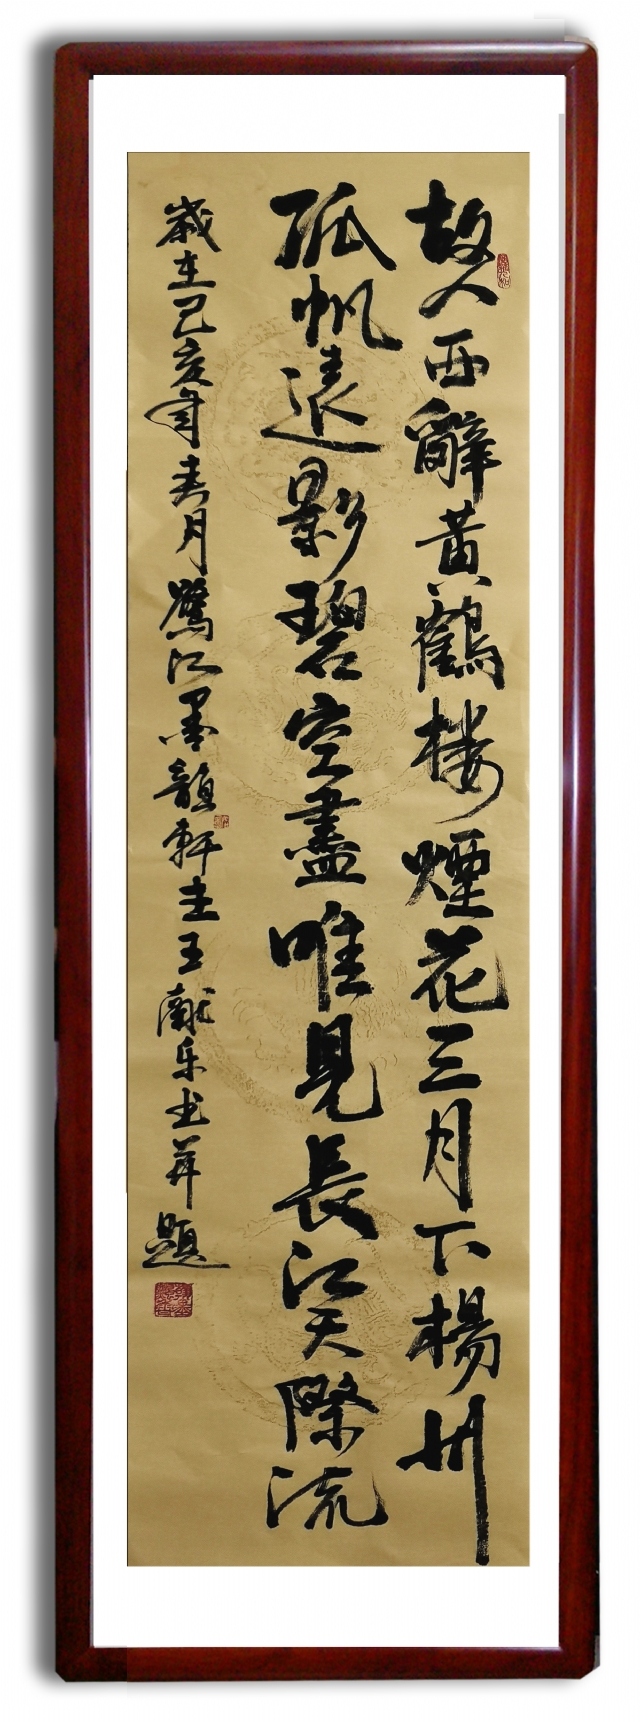 故人西辭黃鶴楼煙花三月下楊州
孤帆遠影碧空盡唯見長江天際流
歲在己亥年春月鷺江墨韻軒主王献乐书并題